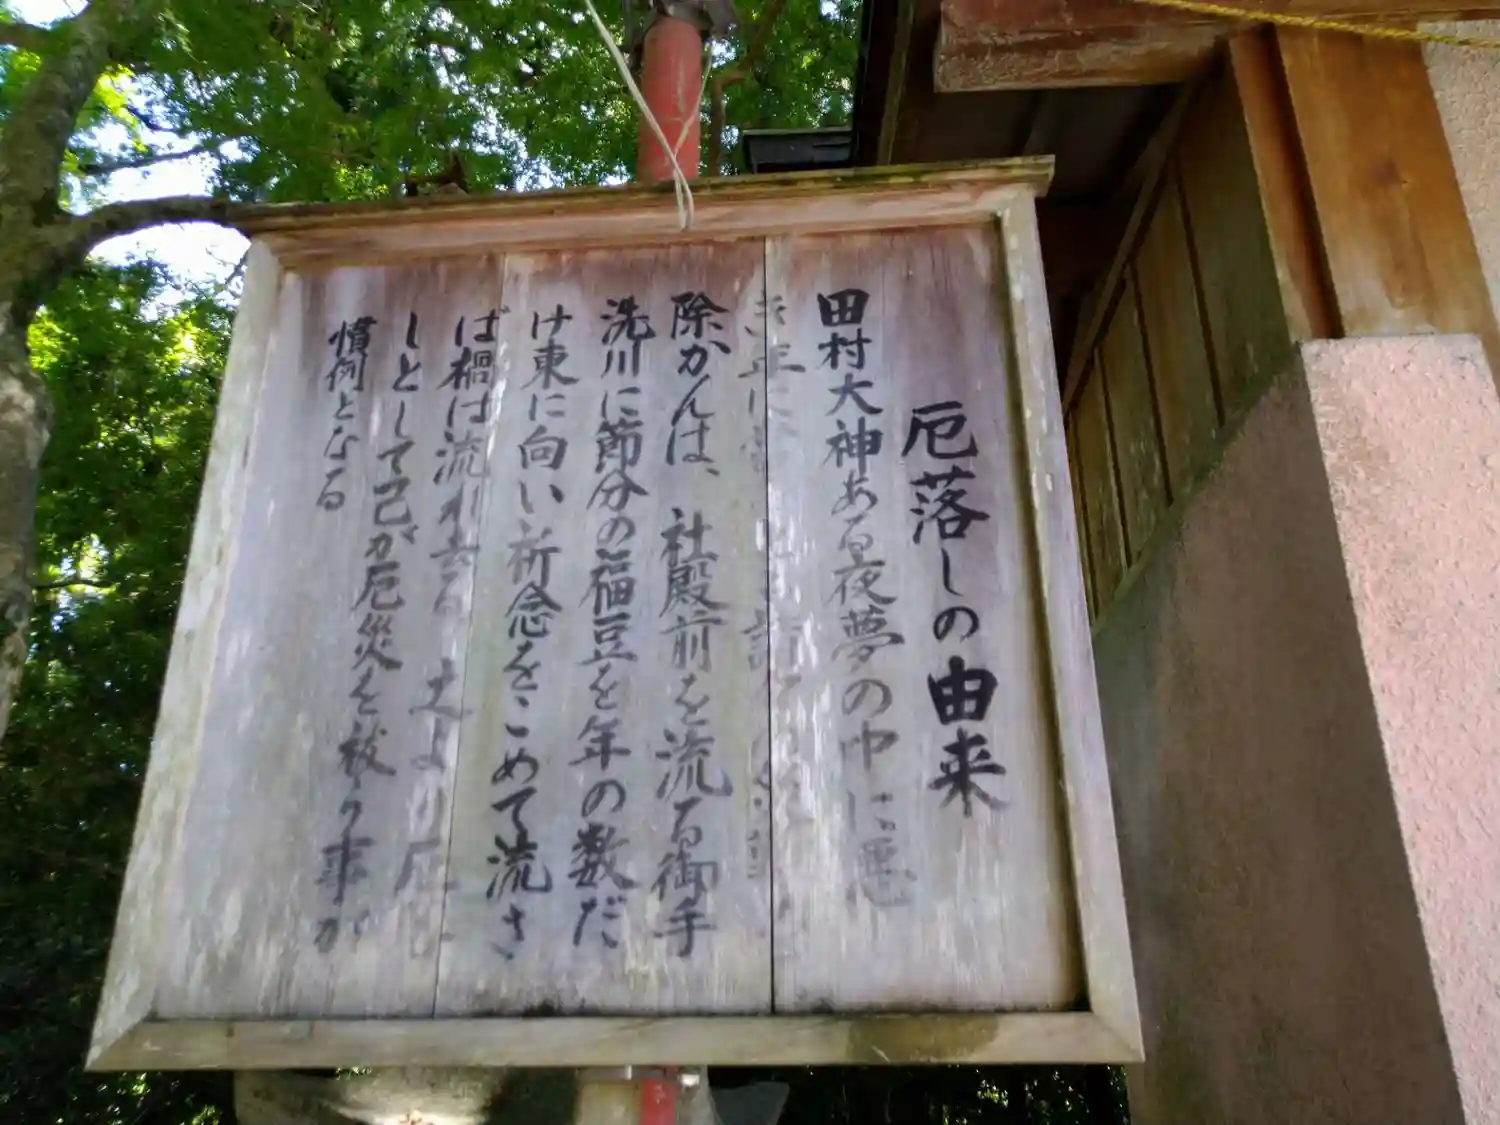 厄落しの由来
田村大神ある夜夢の中に悪
き年に
除かんは、社殿前を流る御手
洗川に節分の福豆を年の数だ
け東に向い祈念をこめて流さ
ば禍は流れ去る 之より厄
しとして己が厄災を祓う事が
慣例となる